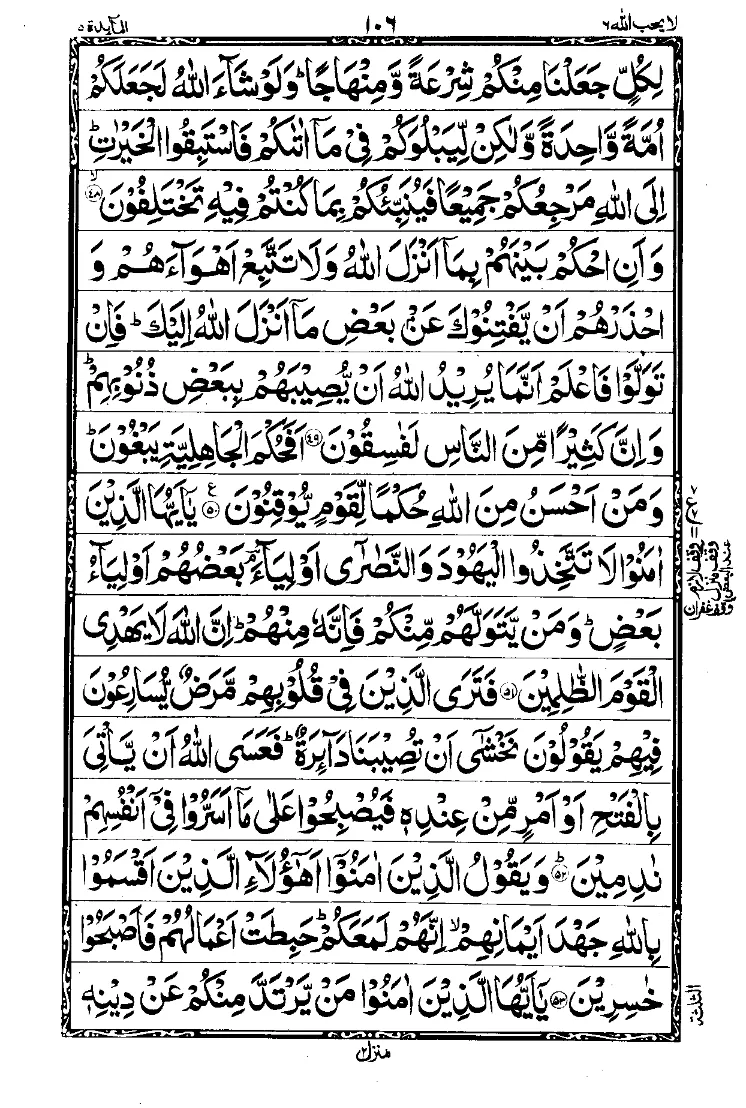 لا یحب الله ٦
١٠٦
المآىدة ٥
لِكُلٍّ جَعَلْنَا مِنْكُمْ شِرْعَةً وَّ مِنْهَاجًا ؕ وَلَوْ شَآءَ اللّٰهُ لَجَعَلَكُمْ
اُمَّةً وَّاحِدَةً وَّلٰكِنْ لِّيَبْلُوَكُمْ فِيْ مَاۤ اٰتٰىكُمْ فَاسْتَبِقُوا الْخَيْرٰتِ ؕ
اِلَى اللّٰهِ مَرْجِعُكُمْ جَمِيْعًا فَيُنَبِّئُكُمْ بِمَا كُنْتُمْ فِيْهِ تَخْتَلِفُوْنَ ۙ﴿٤٨﴾
وَ اَنِ احْكُمْ بَيْنَهُمْ بِمَاۤ اَنْزَلَ اللّٰهُ وَلَا تَتَّبِعْ اَهْوَآءَهُمْ وَ
احْذَرْهُمْ اَنْ يَّفْتِنُوْكَ عَنْۢ بَعْضِ مَاۤ اَنْزَلَ اللّٰهُ اِلَيْكَ ؕ فَاِنْ
تَوَلَّوْا فَاعْلَمْ اَنَّمَا يُرِيْدُ اللّٰهُ اَنْ يُّصِيْبَهُمْ بِبَعْضِ ذُنُوْبِهِمْ ؕ
وَ اِنَّ كَثِيْرًا مِّنَ النَّاسِ لَفٰسِقُوْنَ ﴿٤٩﴾ اَفَحُكْمَ الْجَاهِلِيَّةِ يَبْغُوْنَ ؕ
وَمَنْ اَحْسَنُ مِنَ اللّٰهِ حُكْمًا لِّقَوْمٍ يُّوْقِنُوْنَ ﴿٥٠﴾ ع يٰۤاَيُّهَا الَّذِيْنَ
اٰمَنُوْا لَا تَتَّخِذُوا الْيَهُوْدَ وَ النَّصٰرٰۤى اَوْلِيَآءَ ۘ بَعْضُهُمْ اَوْلِيَآءُ
بَعْضٍ ؕ وَمَنْ يَّتَوَلَّهُمْ مِّنْكُمْ فَاِنَّهٗ مِنْهُمْ ؕ اِنَّ اللّٰهَ لَا يَهْدِى
الْقَوْمَ الظّٰلِمِيْنَ ﴿٥١﴾ فَتَرَى الَّذِيْنَ فِيْ قُلُوْبِهِمْ مَّرَضٌ يُّسَارِعُوْنَ
فِيْهِمْ يَقُوْلُوْنَ نَخْشٰۤى اَنْ تُصِيْبَنَا دَآئِرَةٌ ؕ فَعَسَى اللّٰهُ اَنْ يَّاْتِىَ
بِالْفَتْحِ اَوْ اَمْرٍ مِّنْ عِنْدِهٖ فَيُصْبِحُوْا عَلٰى مَاۤ اَسَرُّوْا فِيْۤ اَنْفُسِهِمْ
نٰدِمِيْنَ ؕ﴿٥٢﴾ وَ يَقُوْلُ الَّذِيْنَ اٰمَنُوْۤا اَهٰۤؤُلَآءِ الَّذِيْنَ اَقْسَمُوْا
بِاللّٰهِ جَهْدَ اَيْمَانِهِمْ ۙ اِنَّهُمْ لَمَعَكُمْ ؕ حَبِطَتْ اَعْمَالُهُمْ فَاَصْبَحُوْا
خٰسِرِيْنَ ﴿٥٣﴾ يٰۤاَيُّهَا الَّذِيْنَ اٰمَنُوْا مَنْ يَّرْتَدَّ مِنْكُمْ عَنْ دِيْنِهٖ
وقف لازم
وقف منزل
الثلثة
منزل ٢